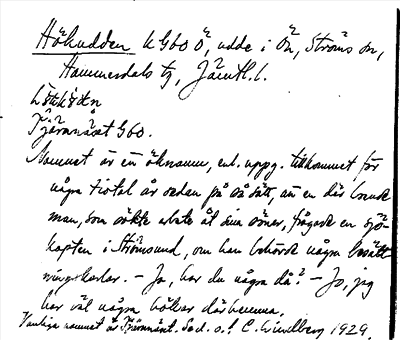 Hökudden kG60 Ö, udde i Ön, Ströms sn,
Hammerdals tg, Jämtl. l.
Tjärnnäset G60.
Namnet är en öknamn, enl. uppg. tillkommet för
några tiotal år sedan på så sätt, att en där boende
man, som sökte arbete åt sina söner, frågade en sjö-
kapten i Strömsund, om han behövde några besätt-
ningskarlar. – Ja, har du några då? – Jo, jag
har väl några hökar där hemma.
Vanliga namnet är Tjärnnäset. Sod. o. l. C. Lindberg 1929.